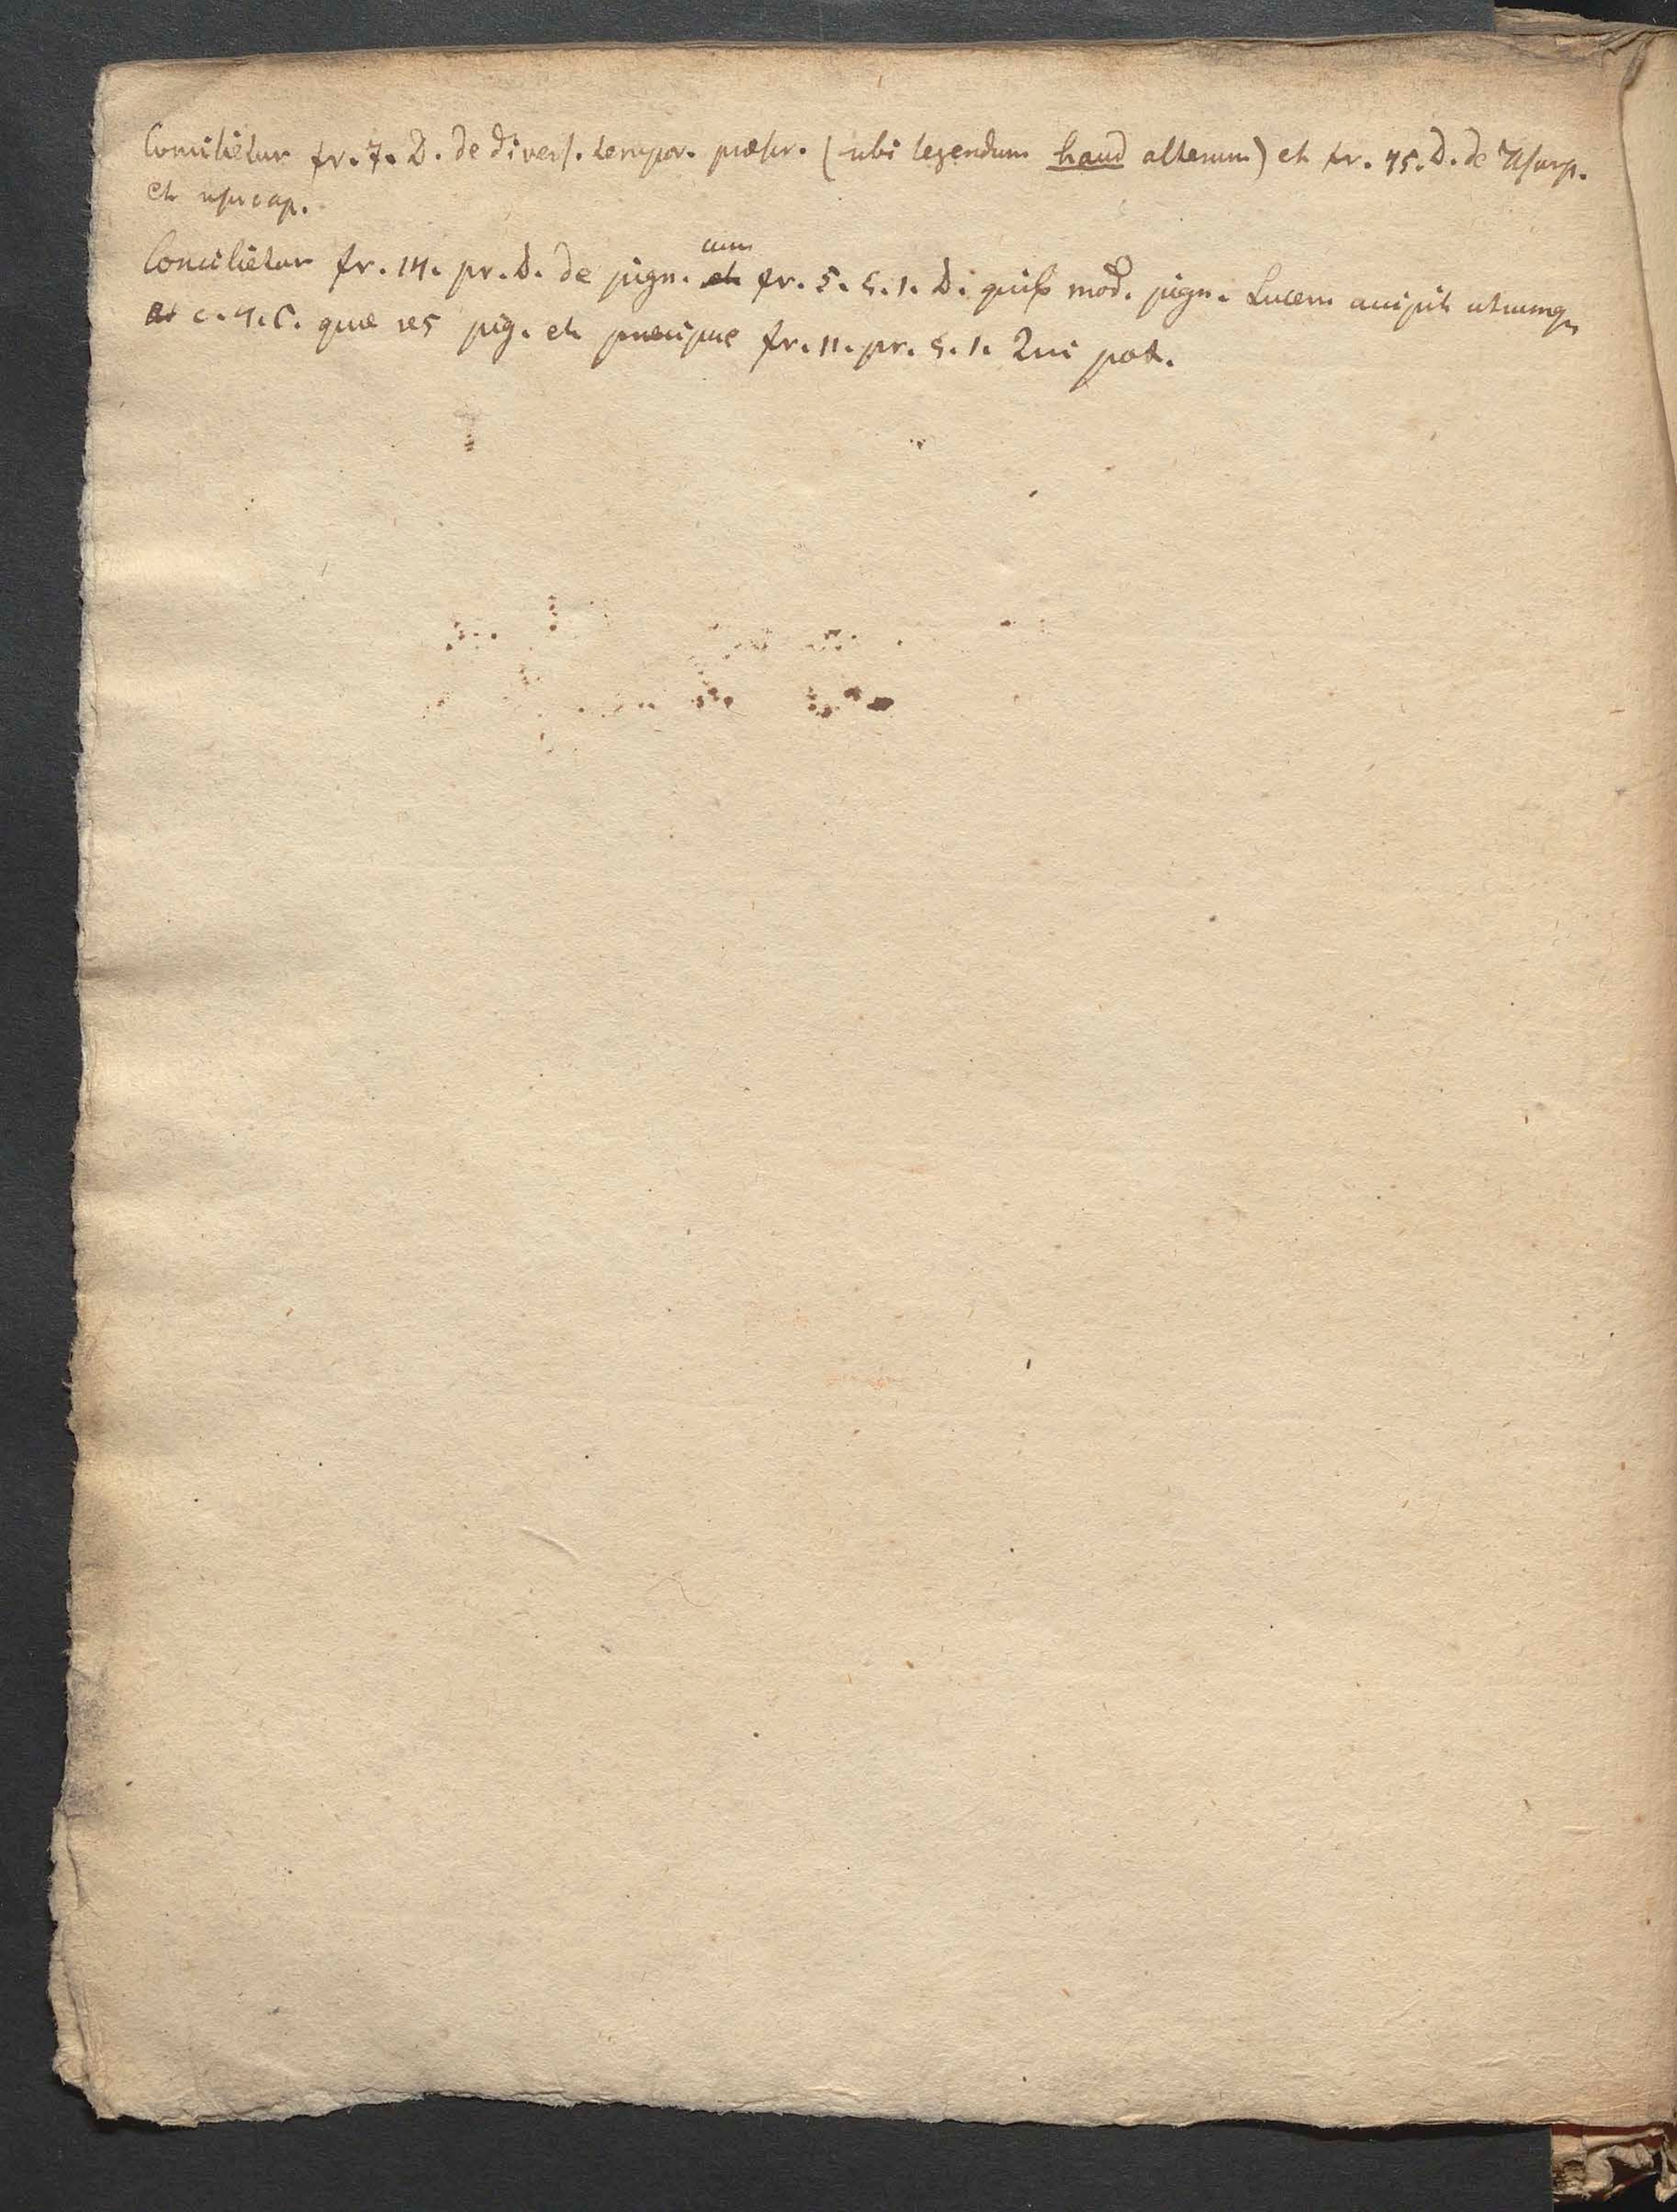 Concilietur fr. 7. D. de divers. tempor. præscr. (ubi legendum haud alterum) et fr. 45. D. de Usurp.
et usucap.
Concilietur fr. 14. pr. D. de pign. cum fr. 5. §. 1. D. quib mod. pign. Lucem accipit utrumq
c. 4. C. quæ res pig. et præcipue fr. 11. pr. §. 1. Qui pot.